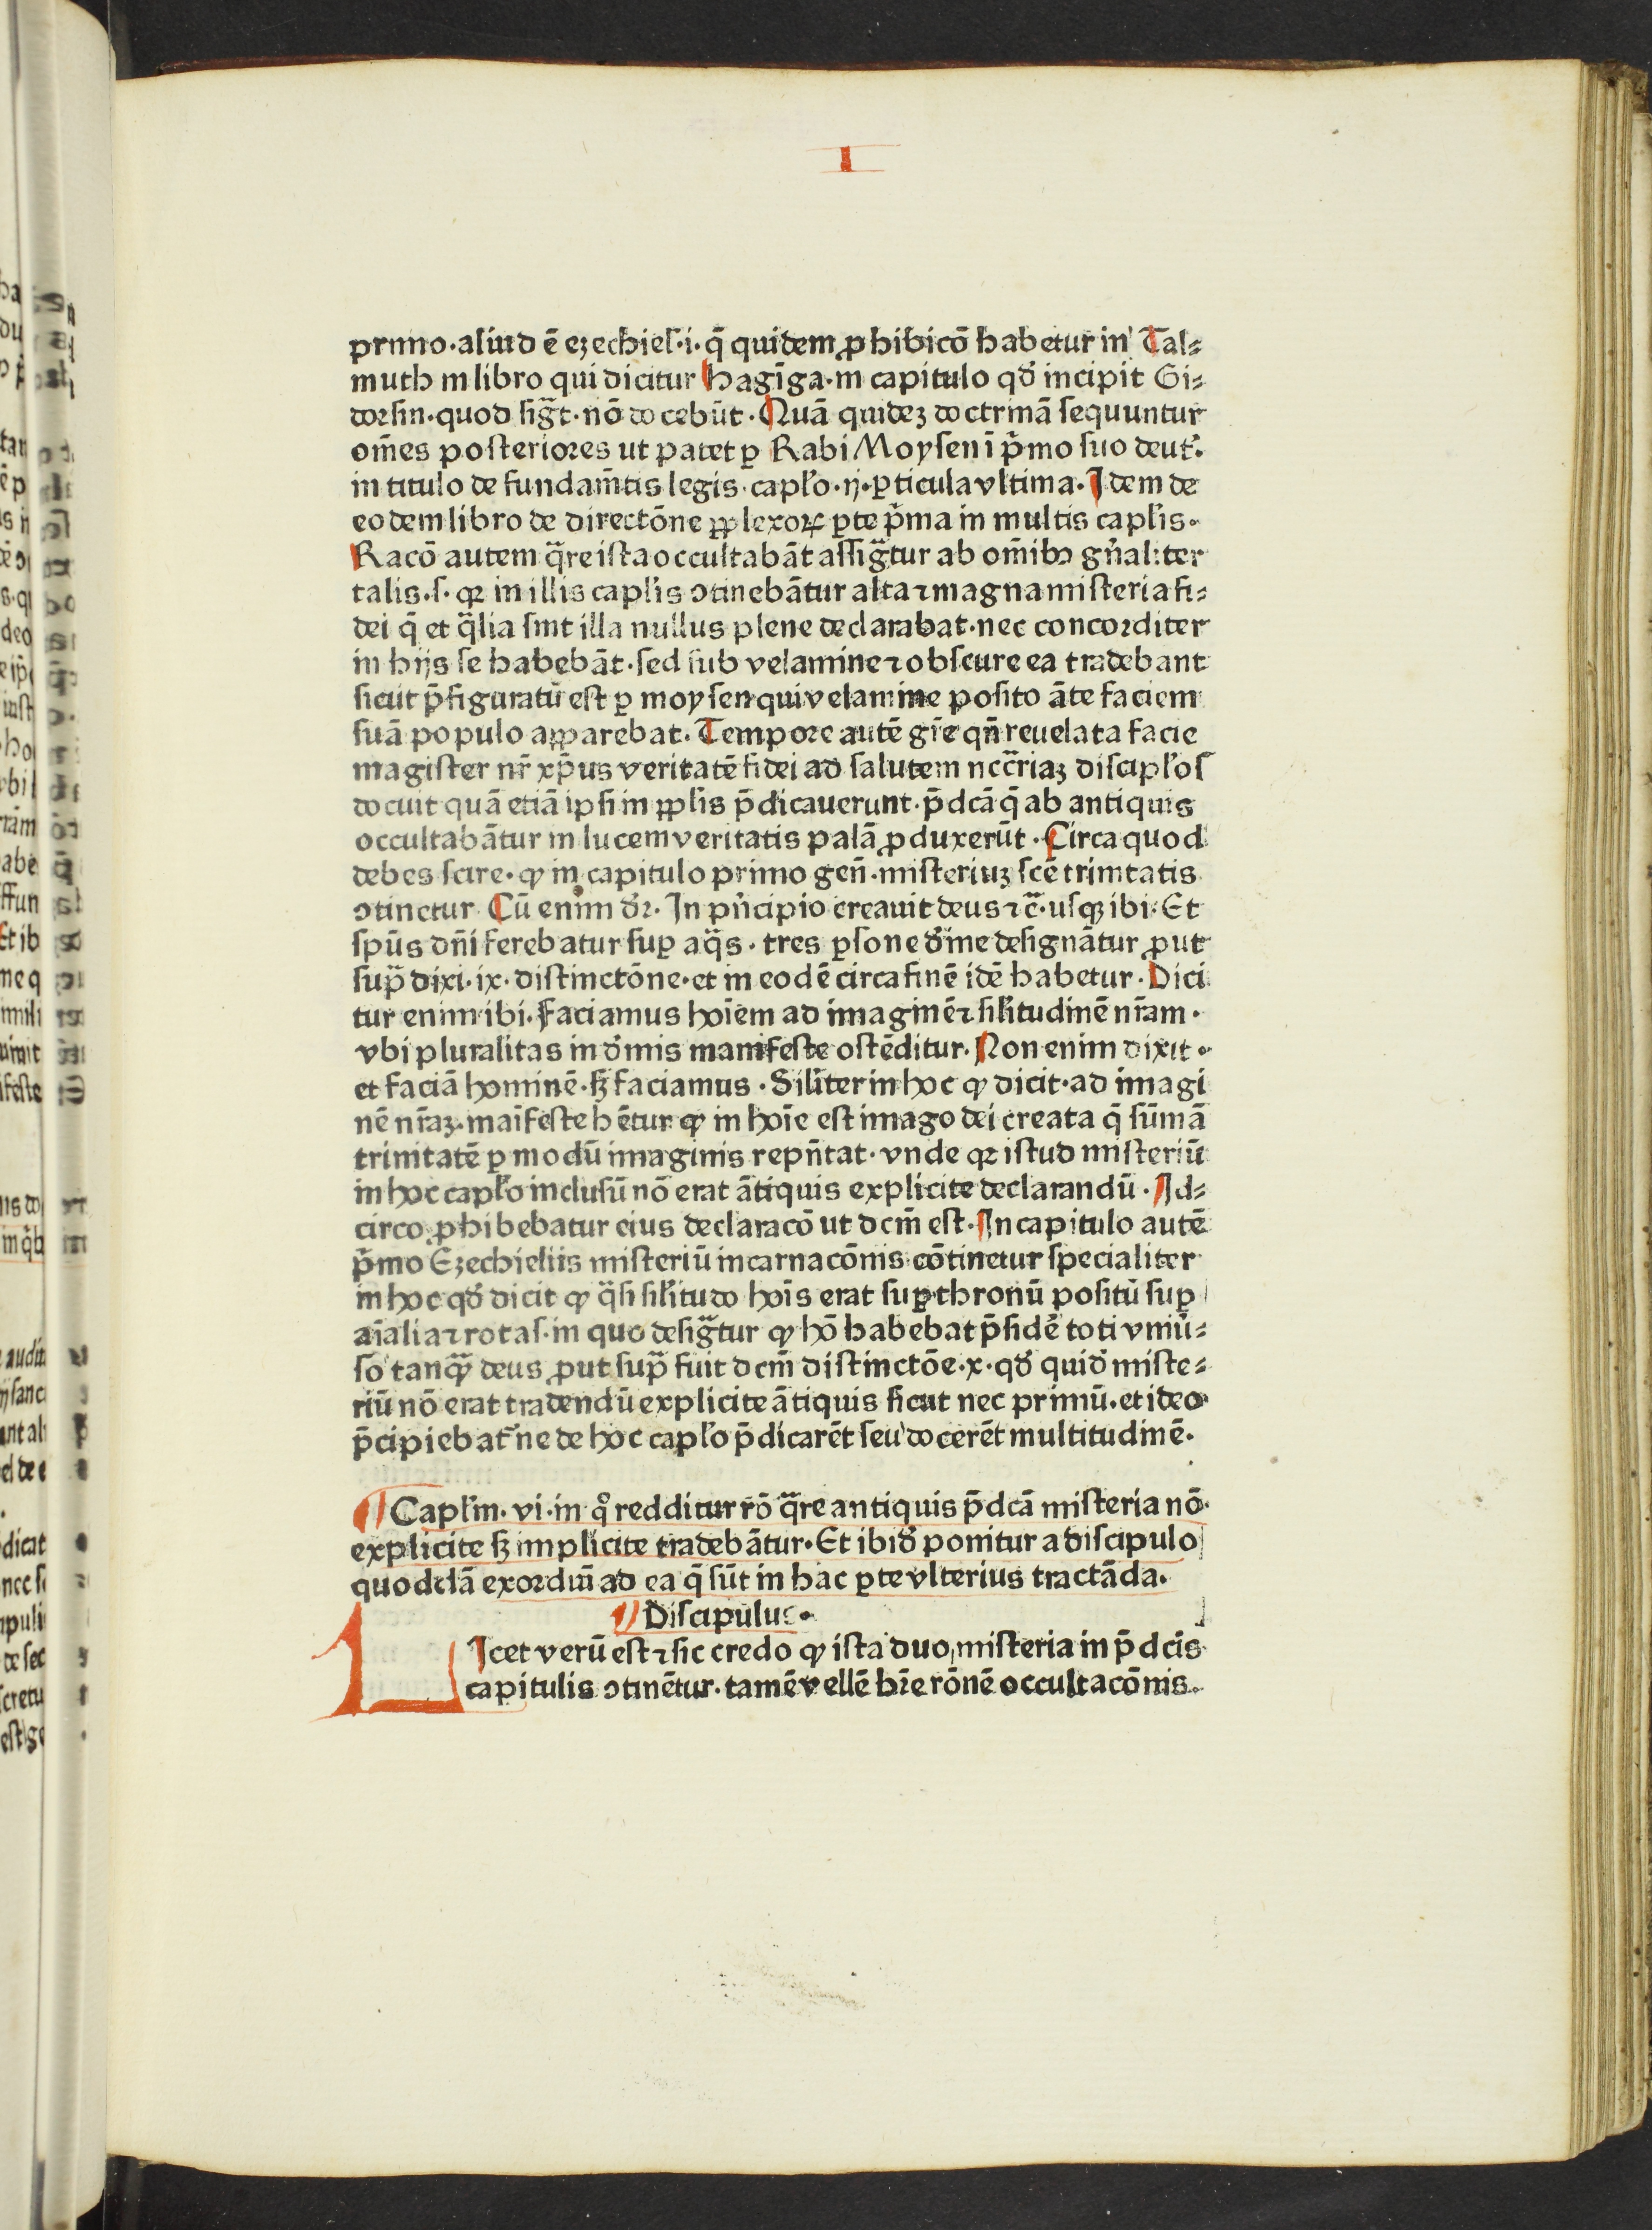 I
primo·aliud ē ezechiel·i·q̄ quidem ꝓhibicō habetur in Tal⸗
muth in libro qui dicitur hagīga·in capitulo qd̛ incipit Gi⸗
dorsin·quod sig̃t·nō docebūt·Quā quideȝ doctrinā sequuntur
om̄es posteriores ut patet ꝑ Rabi Moysen ī p̛mo suo deut̛·
in titulo de fundam̄tis legis·capl̛o·ij·ꝑticula vltima·Idem de
eodem libro de directōne ꝑplexoꝝ ꝑte p̛ma in multis capl̛is·
Racō autem q̃re ista occultabāt assig̃tur ab om̄ibꝰ gn̛aliter
talis·s·qꝛ in illis capl̛is ꝯtinebātur alta ⁊ magna misteria fi⸗
dei q̄ et q̃lia sint illa nullus plene declarabat·nec concorditer
in hijs se habebāt·sed sub velamine ⁊ obscure ea tradebant
sicut p̄figuratū est ꝑ moysen qui velamine posito āte faciem
suā populo apparebat·Tempore autē gr̄e qn̄ reuelata facie
magister nr̄ xp̄us veritatē fidei ad salutem ncc̄riaȝ discipl̛os
docuit quā etiā ipsi in ppl̛is p̄dicauerunt·p̄dcā q̄ ab antiquis
occultabātur in lucem veritatis palā ꝓduxerūt·Circa quod
debes scire·ꝙ in capitulo primo gen̄·misteriuȝ scē trinitatis
ꝯtinetur Cū enim dr̛·In pn̛cipio creauit deus ⁊c̄·usqꝫ ibi·Et
spūs dn̄i ferebatur suꝑ aq̃s·tres ꝑsone d̛ine designātur ꝓut
sup̃ dixi·ix·distinctōne·et in eodē circa finē idē habetur·Dici
tur enim ibi·faciamus hoīem ad imaginē ⁊ sil̛itudinē nr̄am·
vbi pluralitas in d̛inis manifeste ostēditur·Non enim dixit·
et faciā hominē·sȝ faciamus·Sil̛iter in hoc ꝙ dicit·ad imagi
nē nr̄aȝ·maīfeste hētur ꝙ in hoīe est imago dei creata q̄ sūmā
trinitatē ꝑ modū imaginis repn̄tat·vnde qꝛ istud misteriū
in hoc capl̛o inclusū nō erat ātiquis explicite declarandū·Id⸗
circo ꝓhibebatur eius declaracō ut dcm̄ est·In capitulo autē
p̛mo Ezechieliis misteriū incarnacōnis cōtinetur specialiter
in hoc qd̛ dicit ꝙ q̃si sil̛itudo hoīs erat suꝑ thronū positū suꝑ
aīalia ⁊ rotas·in quo desig̃tur ꝙ hō habebat p̄sidē toti vniū⸗
so tanq̃ deus ꝓut sup̃ fuit dcm̄ distinctōe·x·qd̛ quid̛ miste⸗
riū nō erat tradendū explicite ātiquis sicut nec primū·et ideo
p̄cipiebat̛ ne de hoc capl̛o p̄dicarēt seu docerēt multitudinē·
¶ Capl̛m·vi·in qͦ redditur rō q̃re antiquis p̄dcā misteria nō
explicite sȝ implicite tradebātur·Et ibid̛ ponitur a discipulo
quoddā exordiū ad ea q̄ sūt in hac ꝑte vlterius tractāda·
¶ Discipulus·
LIcet verū est ⁊ sic credo ꝙ ista duo misteria in p̄dcīs
capitulis ꝯtinētur·tamē vellē hr̄e rōnē occultacōnis·